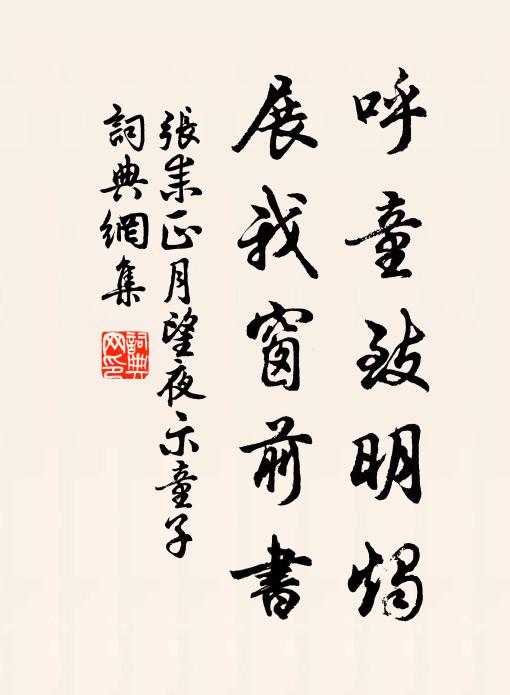 呼童致明燭
展我窗前書
張耒正月望夜示童子
詞典網集
詞典網印